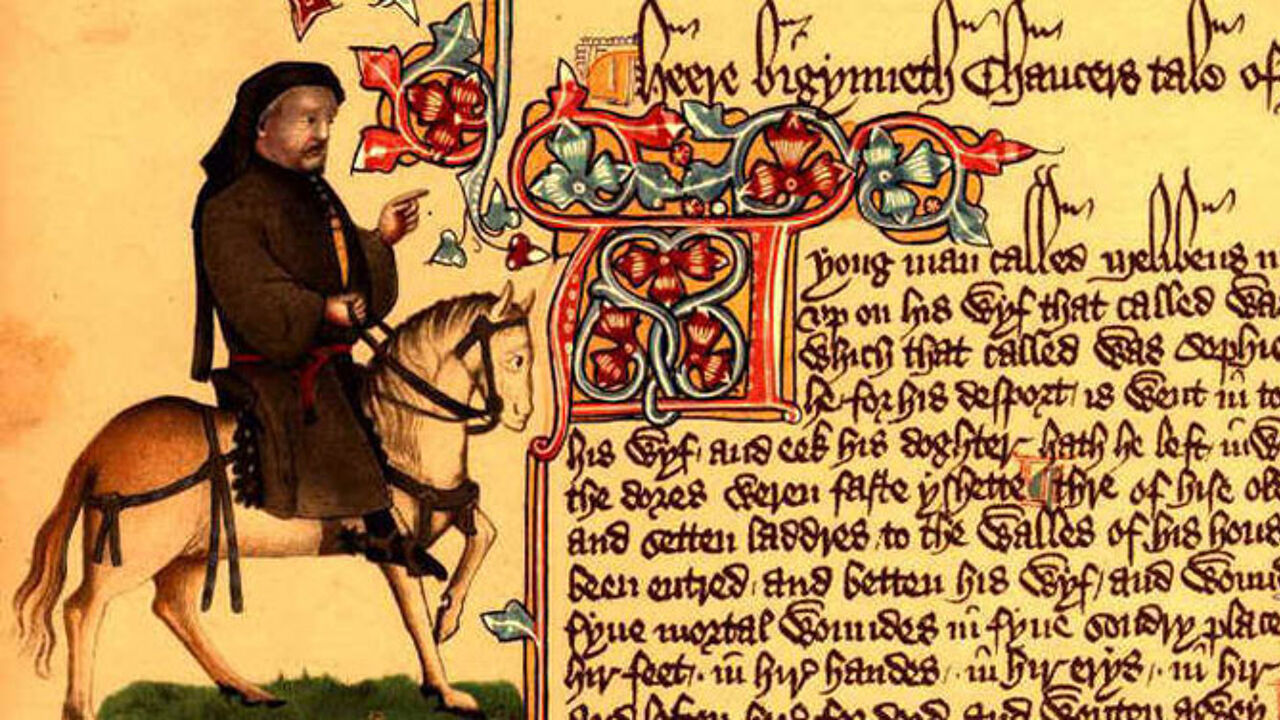 Heere bigynneth Chaucers tale of
A yong man called Melibeus
vp on his wyf that called wa
which that called was Sophie
he for his desport is went in to
his wyf and eek his doghter hath he left inw
the dores weren faste yshette thre of hise ol
and setten laddres to the walles of his hous
been entred and betten his wyf and woun
fyue mortal woundes in fyue sondry place
hir feet in hir handes in hir erys in hir
and leften hire for deed and wenten awey